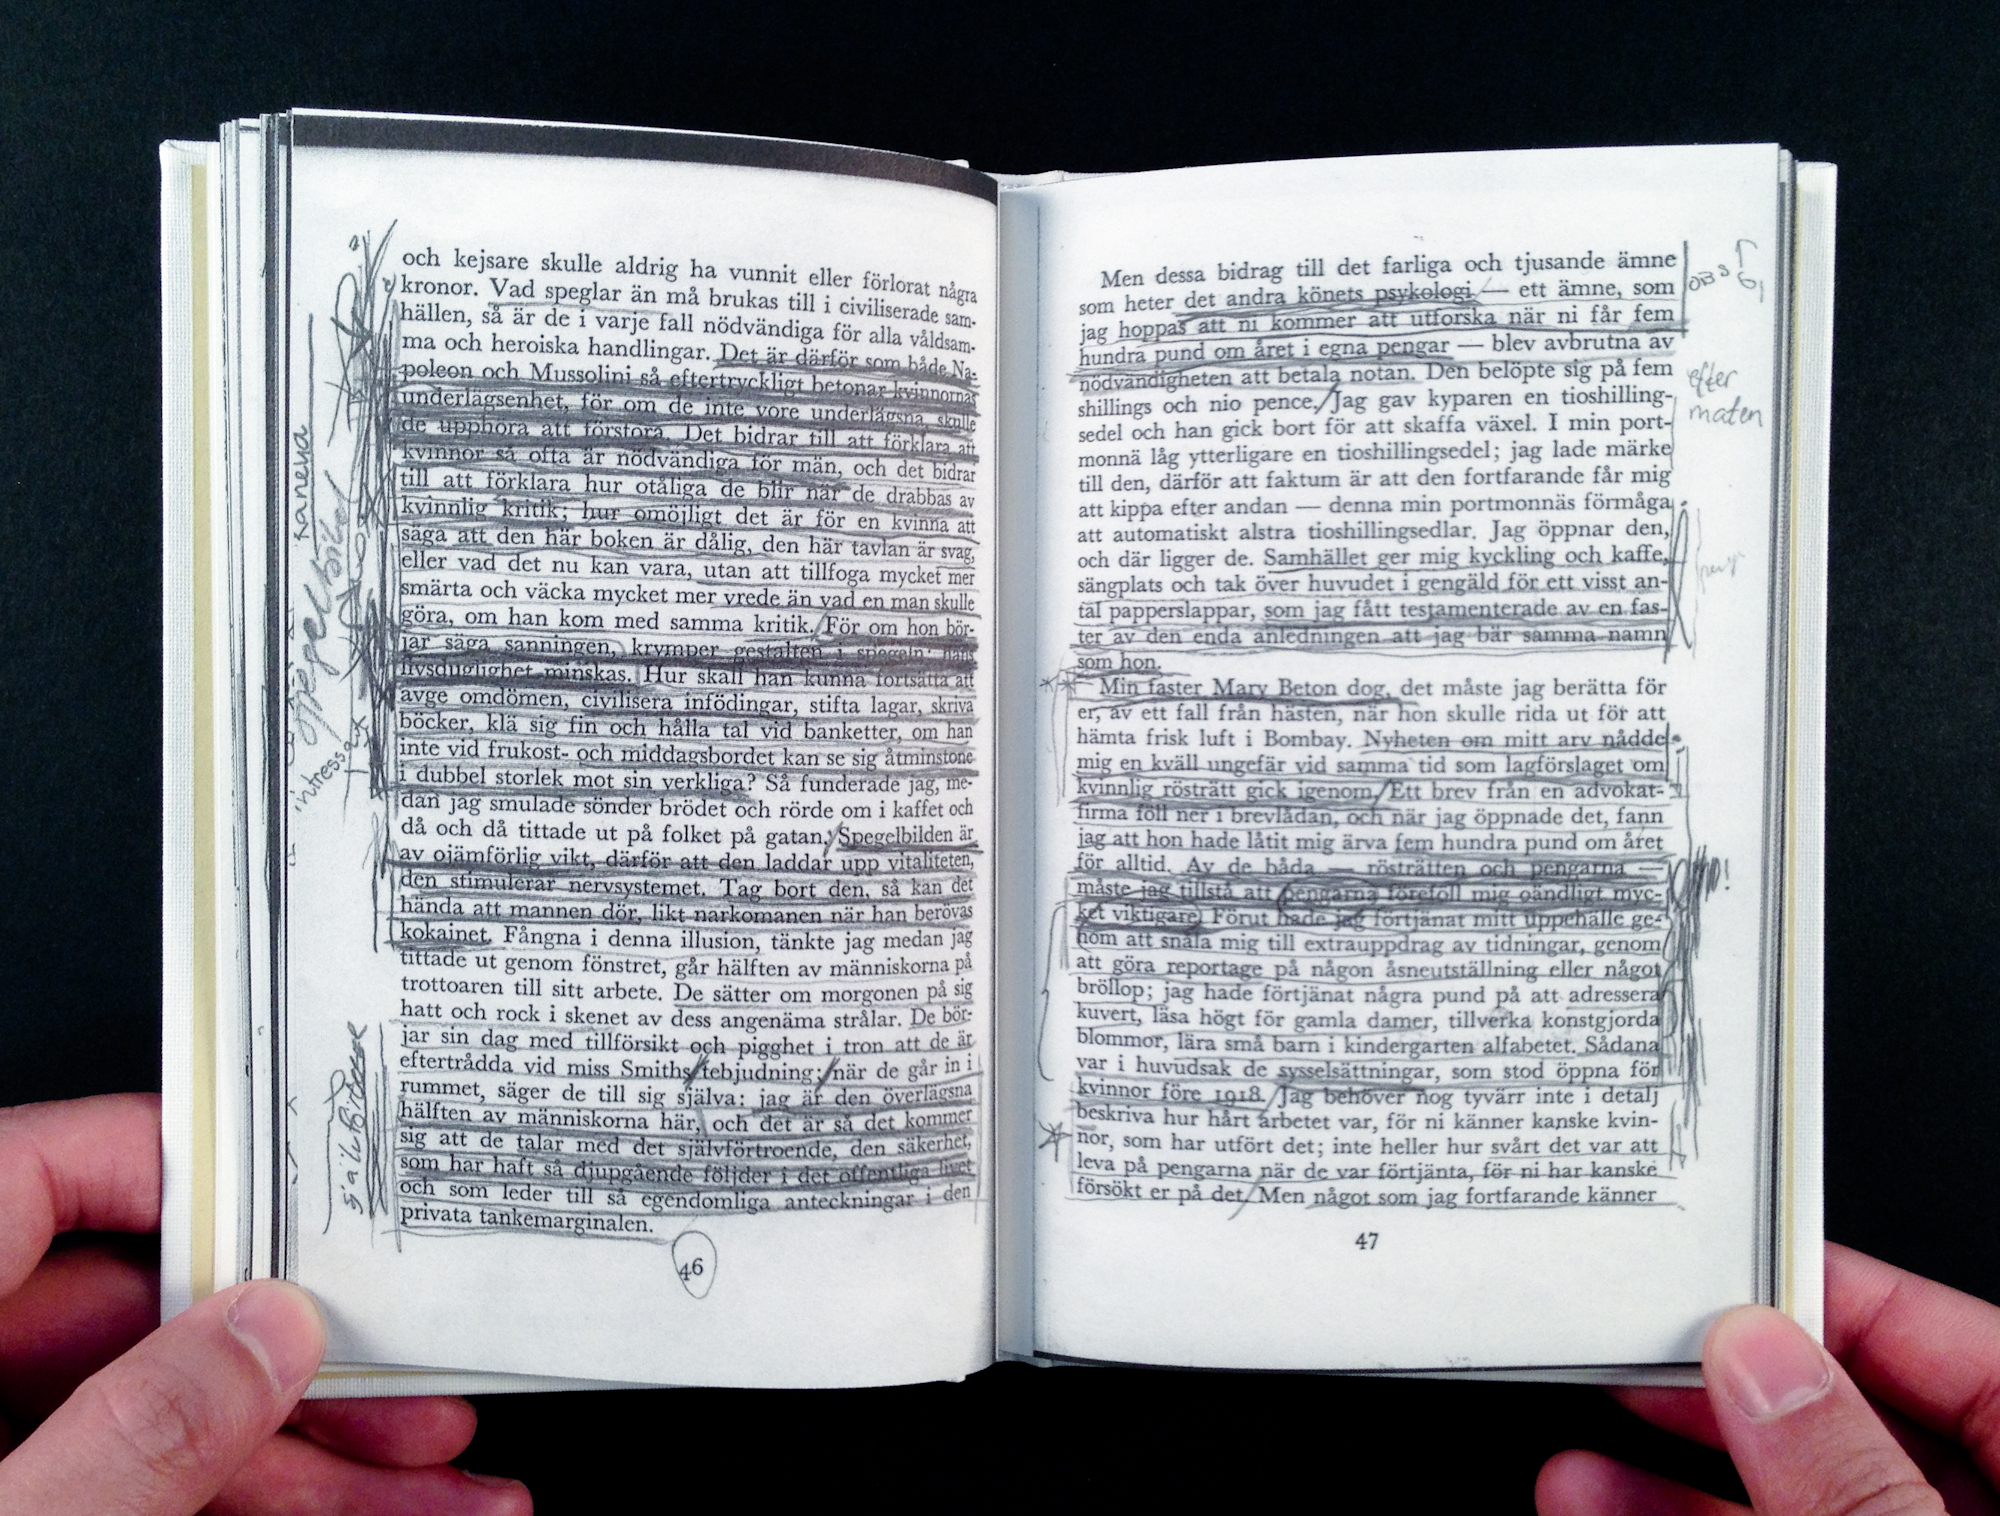 och kejsare skulle aldrig ha vunnit eller förlorat några
kronor. Vad speglar än må brukas till i civiliserade sam-
hällen, så är de i varje fall nödvändiga för alla våldsam-
ma och heroiska handlingar. Det är därför som både Na-
poleon och Mussolini så eftertryckligt betonar kvinnornas
underlägsenhet, för om de inte vore underlägsna, skulle
de upphöra att förstora. Det bidrar till att förklara att
kvinnor så ofta är nödvändiga för män, och det bidrar
till att förklara hur otåliga de blir när de drabbas av
kvinnlig kritik; hur omöjligt det är för en kvinna att
säga att den här boken är dålig, den här tavlan är svag,
eller vad det nu kan vara, utan att tillfoga mycket mer
smärta och väcka mycket mer vrede än vad en man skulle
göra, om han kom med samma kritik. För om hon bör-
jar säga sanningen, krymper gestalten i spegeln; hans
livsduglighet minskas. Hur skall han kunna fortsätta att
avge omdömen, civilisera infödingar, stifta lagar, skriva
böcker, klä sig fin och hålla tal vid banketter, om han
inte vid frukost- och middagsbordet kan se sig åtminstone
i dubbel storlek mot sin verkliga? Så funderade jag, me-
dan jag smulade sönder brödet och rörde om i kaffet och
då och då tittade ut på folket på gatan. Spegelbilden är
av ojämförlig vikt, därför att den laddar upp vitaliteten,
den stimulerar nervsystemet. Tag bort den, så kan det
hända att mannen dör, likt narkomanen när han berövas
kokainet. Fångna i denna illusion, tänkte jag medan jag
tittade ut genom fönstret, går hälften av människorna på
trottoaren till sitt arbete. De sätter om morgonen på sig
hatt och rock i skenet av dess angenäma strålar. De bör-
jar sin dag med tillförsikt och pigghet i tron att de är
eftertrådda vid miss Smiths tebjudning; när de går in i
rummet, säger de till sig själva: jag är den överlägsna
hälften av människorna här, och det är så det kommer
sig att de talar med det självförtroende, den säkerhet,
som har haft så djupgående följder i det offentliga livet
och som leder till så egendomliga anteckningar i den
privata tankemarginalen.
46
spegelbild
Men dessa bidrag till det farliga och tjusande ämne
som heter det andra könets psykologi — ett ämne, som
jag hoppas att ni kommer att utforska när ni får fem
hundra pund om året i egna pengar — blev avbrutna av
nödvändigheten att betala notan. Den belöpte sig på fem
shillings och nio pence. Jag gav kyparen en tioshilling-
sedel och han gick bort för att skaffa växel. I min port-
monnä låg ytterligare en tioshillingsedel; jag lade märke
till den, därför att faktum är att den fortfarande får mig
att kippa efter andan — denna min portmonnäs förmåga
att automatiskt alstra tioshillingsedlar. Jag öppnar den,
och där ligger de. Samhället ger mig kyckling och kaffe,
sängplats och tak över huvudet i gengäld för ett visst an-
tal papperslappar, som jag fått testamenterade av en fas-
ter av den enda anledningen att jag bär samma namn
som hon.
Min faster Mary Beton dog, det måste jag berätta för
er, av ett fall från hästen, när hon skulle rida ut för att
hämta frisk luft i Bombay. Nyheten om mitt arv nådde
mig en kväll ungefär vid samma tid som lagförslaget om
kvinnlig rösträtt gick igenom. Ett brev från en advokat-
firma föll ner i brevlådan, och när jag öppnade det, fann
jag att hon hade låtit mig ärva fem hundra pund om året
för alltid. Av de båda — rösträtten och pengarna —
måste jag tillstå att pengarna föreföll mig oändligt myc-
ket viktigare. Förut hade jag förtjänat mitt uppehälle ge-
nom att snåla mig till extrauppdrag av tidningar, genom
att göra reportage på någon åsneutställning eller något
bröllop; jag hade förtjänat några pund på att adressera
kuvert, läsa högt för gamla damer, tillverka konstgjorda
blommor, lära små barn i kindergarten alfabetet. Sådana
var i huvudsak de sysselsättningar, som stod öppna för
kvinnor före 1918. Jag behöver nog tyvärr inte i detalj
beskriva hur hårt arbetet var, för ni känner kanske kvin-
nor, som har utfört det; inte heller hur svårt det var att
leva på pengarna när de var förtjänta, för ni har kanske
försökt er på det. Men något som jag fortfarande känner
47
OBS
efter
maten